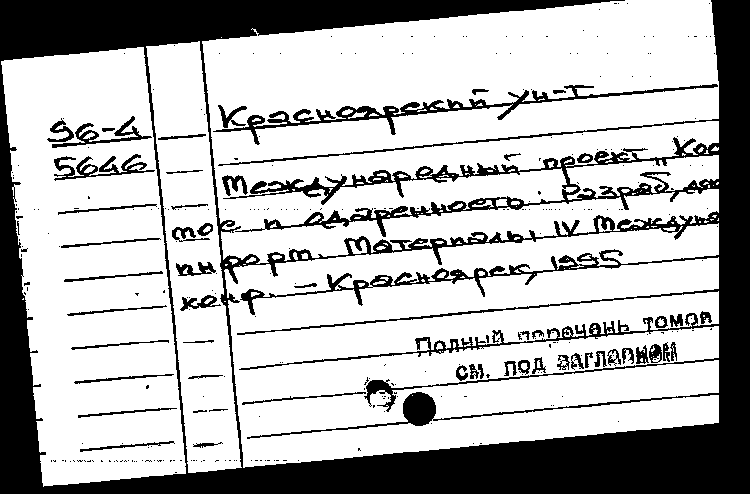 96-4
5646
Красноярский ун-т.
Международный проект „Кос
мос и одаренность: Разраб,
информ. Материалы IV Междуна
конф. – Красноярск, 1995
Полный перечень томов
см. под заглавием